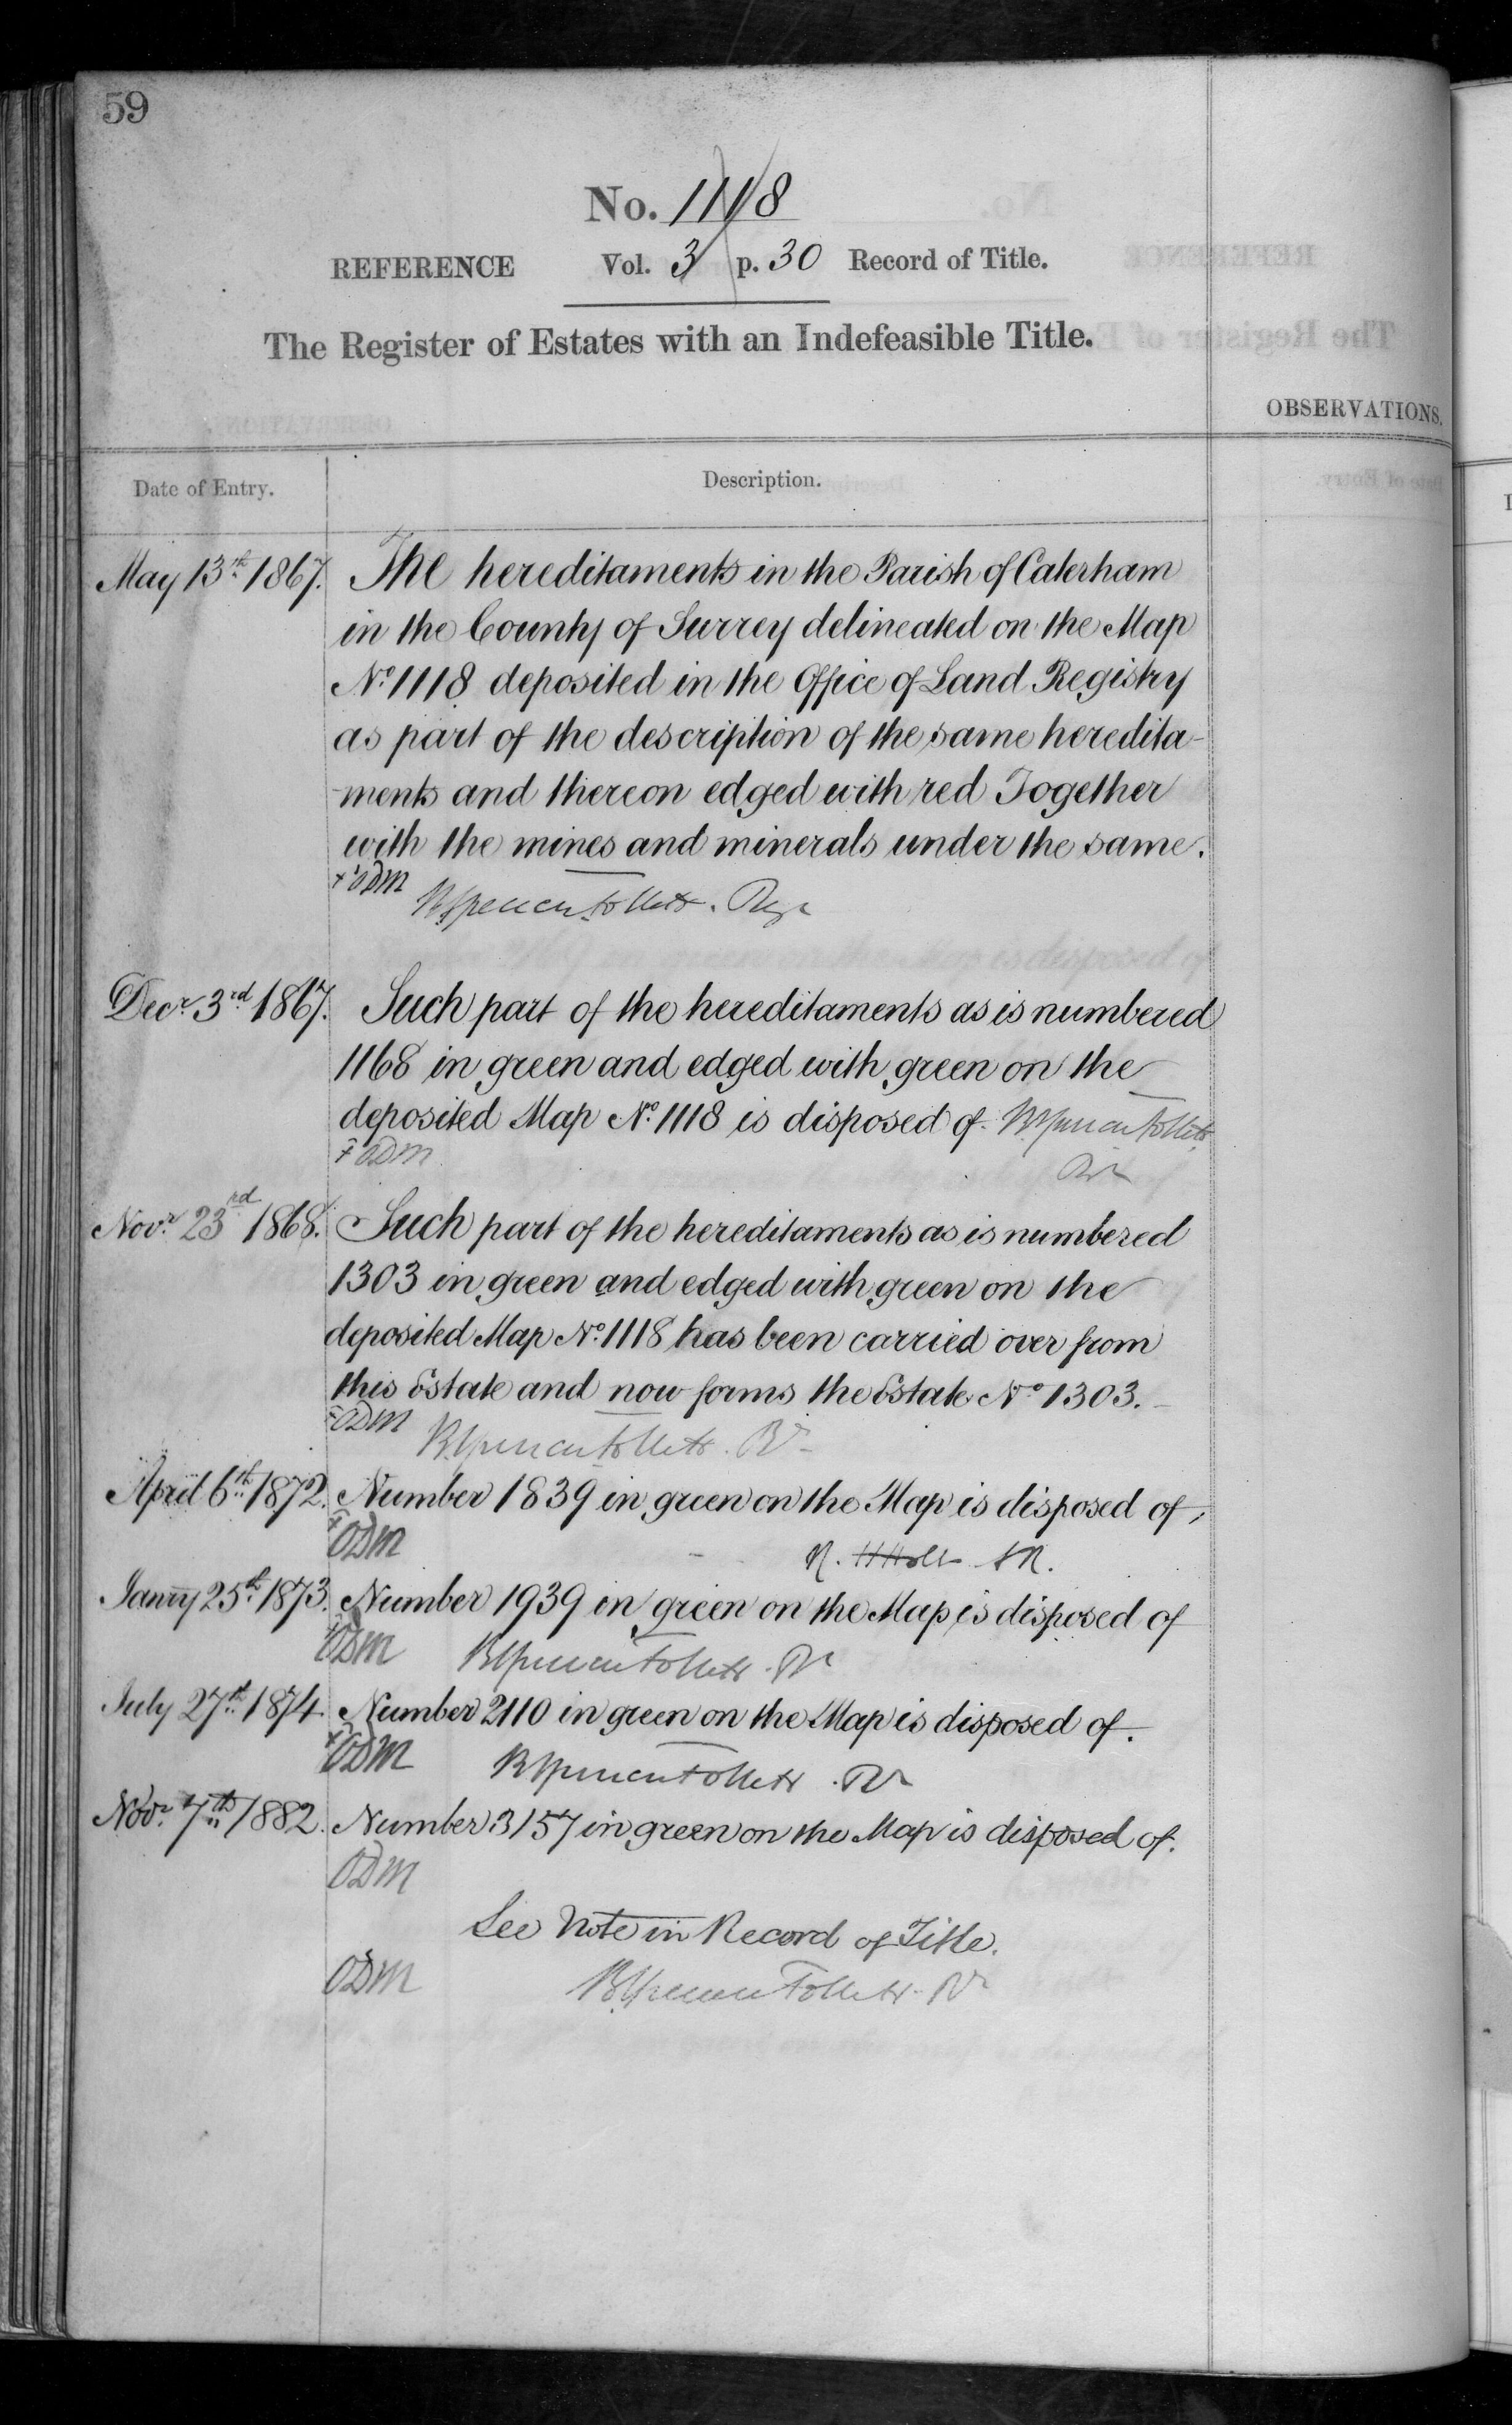 59
No. 1118
REFERENCE Vol. 3 p. 30 Record of Title.
The Register of Estates with an Indefeasible Title.
OBSERVATIONS.
Date of Entry. Description.
May 13th. 1867. The hereditaments in the Parish of Caterham
in the County of Surrey delineated on the Map
No. 1118 deposited in the Office of Land Registry
as part of the description of the same heredita-
ments and thereon edged with red Together
with the mines and minerals under the same.
+ ODM Follett. Regr
Decr. 3rd 1867. Such part of the hereditaments as is numbered
1168 in green and edged with green on the
deposited Map No. 1118 is disposed of. Follett
+ ODM
Novr. 23rd 1868. Such part of the hereditaments as is numbered
1303 in green and edged with green on the
deposited Map No. 1118 has been carried over from
this Estate and now forms the Estate No. 1303.
ODM Follett.
April 6th. 1872. Number 1839 in green on the Map is disposed of,
ODM R. H Holt
Janry 25th. 1873. Number 1939 in green on the Map is disposed of
ODM Follett.
July 27th. 1874 Number 2110 in green on the Map is disposed of.
ODM Follett.
Novr. 7th 1882. Number 3157 in green on the Map is disposed of.
ODM
See Note in Record of Title.
ODM Follett.